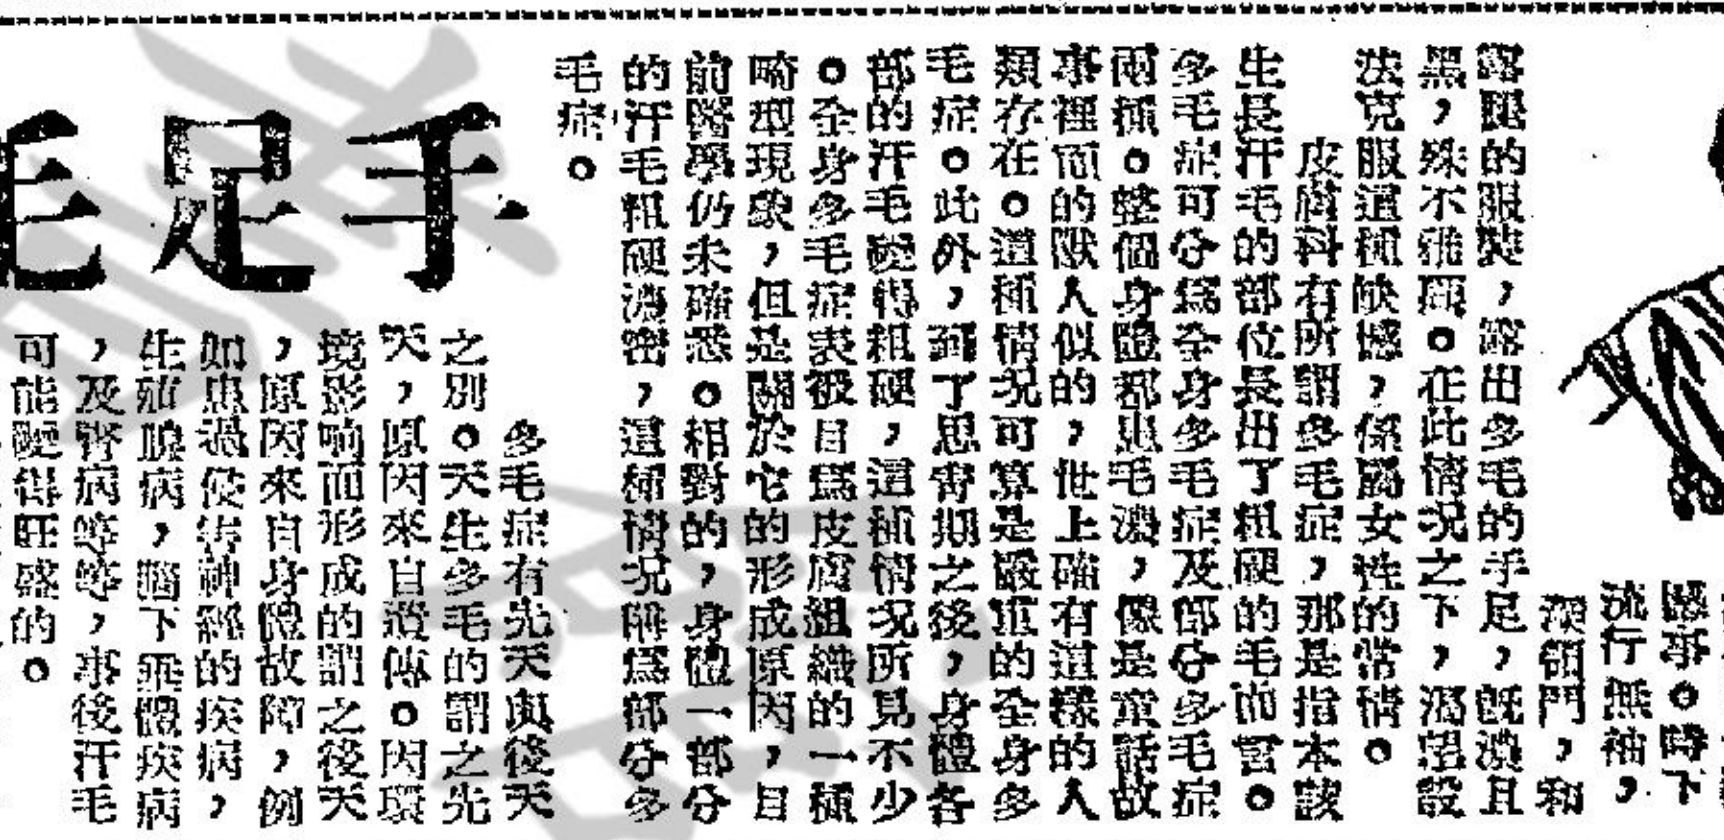 憾事。時下
流行無袖，
深領門，和
露腿的服裝，露出多毛的手足，既濃且
黑，殊不雅觀。在此情況之下，渴望設
法克服這種缺憾，係屬女性的常情。
皮膚科有所謂多毛症，那是指本該
生長汗毛的部位長出了粗硬的毛而言。
多毛症可分為全身多毛症及部分多毛症
兩種。整個身體都患毛濃，像是童話故
事裡面的獸人似的，世上確有這樣的人
類存在。這種情況可算是嚴重的全身多
毛症。此外，到了思青期之後，身體各
部的汗毛變得粗硬，這種情況所見不少
。全身多毛症表被目為皮膚組織的一種
畸型現象，但是關於它的形成原因，目
前醫學仍未確悉。相對的，身體一部分
的汗毛粗硬濃密，這種情況稱為部分多
毛症。
手足毛
多毛症有先天與後天
之別。天生多毛的謂之先
天，原因來自遺傳。因環
境影响而形成的謂之後天
，原因來自身體故障，例
如患過侵害神經的疾病，
生殖腺病，腦下垂體疾病
，及腎病等等，事後汗毛
可能變得旺盛的。